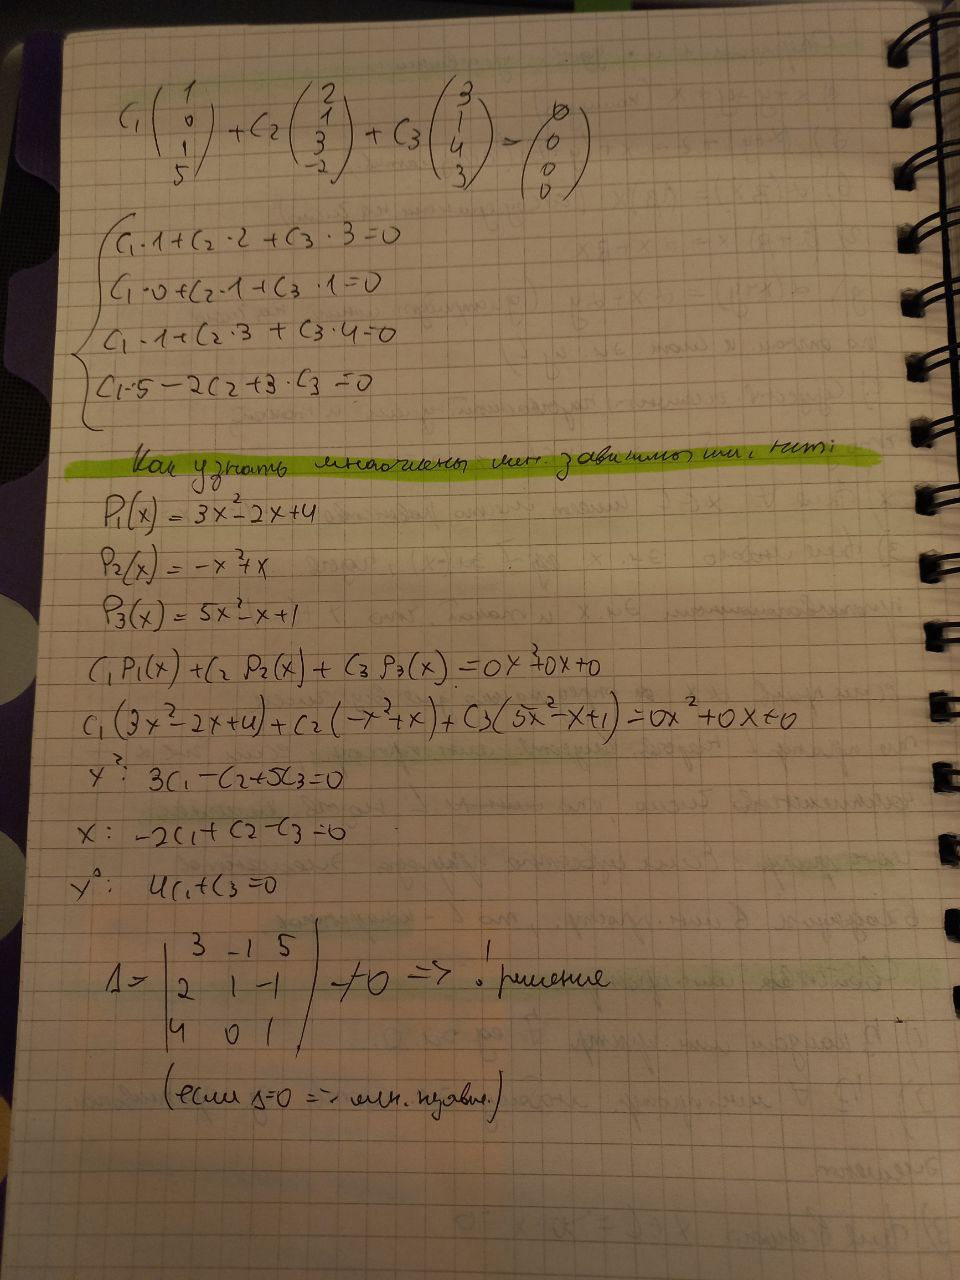 C₁(1 0 1 5) + C₂(2 1 3 -2) + C₃(3 1 4 3) = (0 0 0 0)
C₁·1+C₂·2+C₃·3=0
C₁·0+C₂·1+C₃·1=0
C₁·1+C₂·3+C₃·4=0
C₁·5-2C₂+3·C₃=0
Как узнать многочлены лин. зависимы или нет:
P₁(x) = 3x²-2x+4
P₂(x) = -x²+x
P₃(x) = 5x²-x+1
C₁P₁(x)+C₂P₂(x)+C₃P₃(x)=0x²+0x+0
C₁(3x²-2x+4)+C₂(-x²+x)+C₃(5x²-x+1)=0x²+0x+0
x²: 3C₁-C₂+5C₃=0
x: -2C₁+C₂-C₃=0
x⁰: 4C₁+C₃=0
Δ= |3 -1 5
2 1 -1
4 0 1| ≠0 => ! решение
(если Δ=0 => лин.